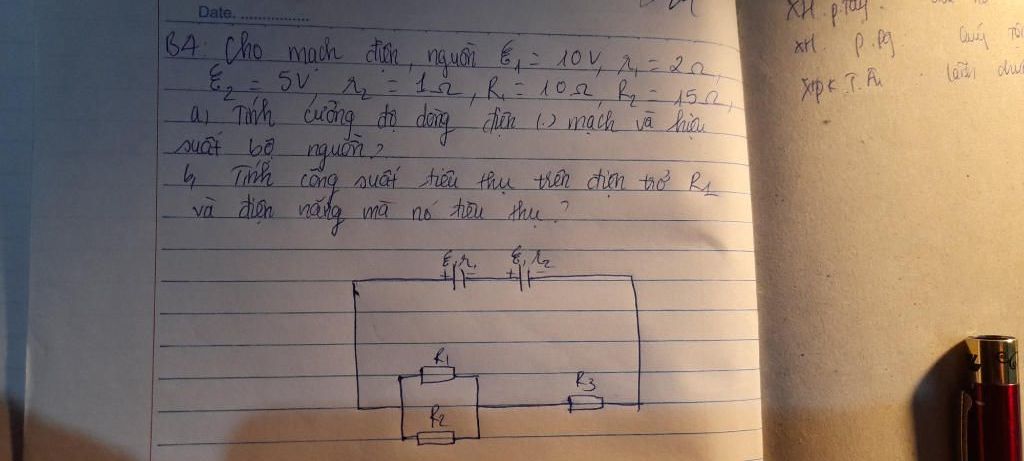 Date. ..................
B4: Cho mạch điện, nguồn ξ1 = 10V, r1 = 2Ω,
ξ2 = 5V, r2 = 1Ω, R1 = 10Ω, R2 = 15Ω,
a, Tính cường độ dòng điện (.) mạch và hiệu
suất bộ nguồn?
b, Tính công suất tiêu thụ trên điện trở R1
và điện năng mà nó tiêu thụ?
ξ, r1 ξ, r2
+ - + -
R1
R3
R2
XH. p. Tây
XH p. pg
XHPK T. Âu